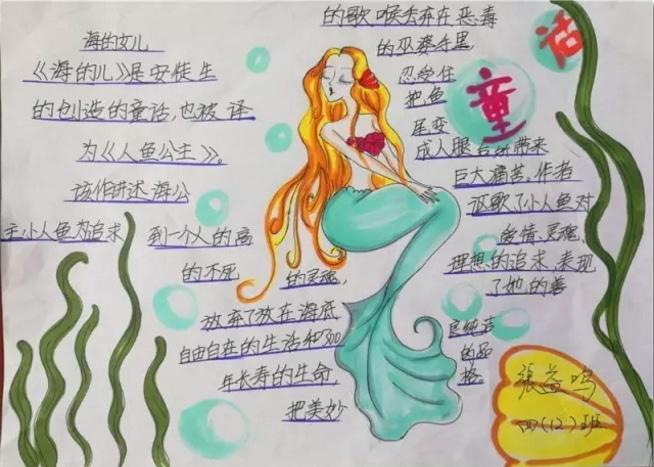 海的女儿
《海的儿》是安徒生
的创造的童话,也被译
为《人鱼公主》。
该作讲述海公
主小人鱼为追求
到一个人的高
的不死
的灵魂,
放弃了放在海底
自由自在的生活和300
年长寿的生命,
把美妙
的歌喉丢弃在恶毒
的巫婆手里,
忍受住
把鱼
尾变
成人腿后所带来
巨大痛苦。作者
讴歌了小人鱼对
爱情、灵魂、
理想的追求,表现
了她的善
良纯洁
的品格。
童话
張益鸣
四(12)班